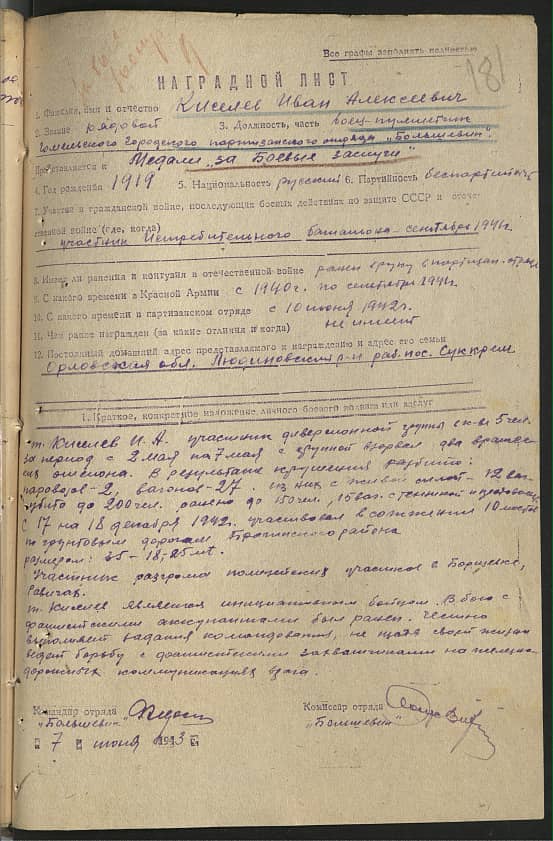 Все графы заполнять полностью
181
НАГРАДНОЙ ЛИСТ
1. Фамилия, имя и отчество Киселев Иван Алексеевич
2. Звание рядовой 3. Должность, часть боец-пулеметчик
Гомельского городского партизанского отряда „Большевик".
Представляется к Медали „за Боевые заслуги"
4. Год рождения 1919 5. Национальность русский 6. Партийность беспартийный
7. Участие в гражданской войне, последующих боевых действиях по защите СССР и отече-
ственной войне (где, когда)
участник Истребительного батальона - сентябрь 1941г.
8. Имеет ли ранения и контузии в отечественной войне ранен в руку в партизан. отряде
9. С какого времени в Красной Армии с 1940г. по сентябрь 1941г.
10. С какого времени в партизанском отряде с 10 июня 1942г.
11. Чем ранее награжден (за какие отличия и когда) не имеет
12. Постоянный домашний адрес представляемого к награждению и адрес его семьи
Орловская обл. Людиновский р-н раб. пос. Сукремль
1. Краткое, конкретное изложение личного боевого подвига или заслуг
т. Киселев И.А. участник диверсионной группы к-ве 5 чел.
За период с 2 мая по 7 мая с группой взорвал два вражес-
ких эшелона. В результате крушения разбито:
паровозов - 2, вагонов - 27. из них с живой силой - 12 ваг.
убито до 200 чел. ранено до 150 чел., 15 ваг. с техникой и
с 17 на 18 декабря 1942г. участвовал в сожжении 10 мостов
по грунтовым дорогам района
размером: 35-18-25 мт.
Участник разгрома полицейских участков в Борщевке,
Савичах.
т. Киселев является инициативным бойцом. В бою с
фашистскими оккупантами был ранен. Честно
выполняет задания командования, не щадя своей жизни
ведет борьбу с фашистскими захватчиками на железно-
дорожных коммуникациях врага.
Командир отряда Комиссар отряда
„Большевик" „Большевик"
„7" июня 1943 г.